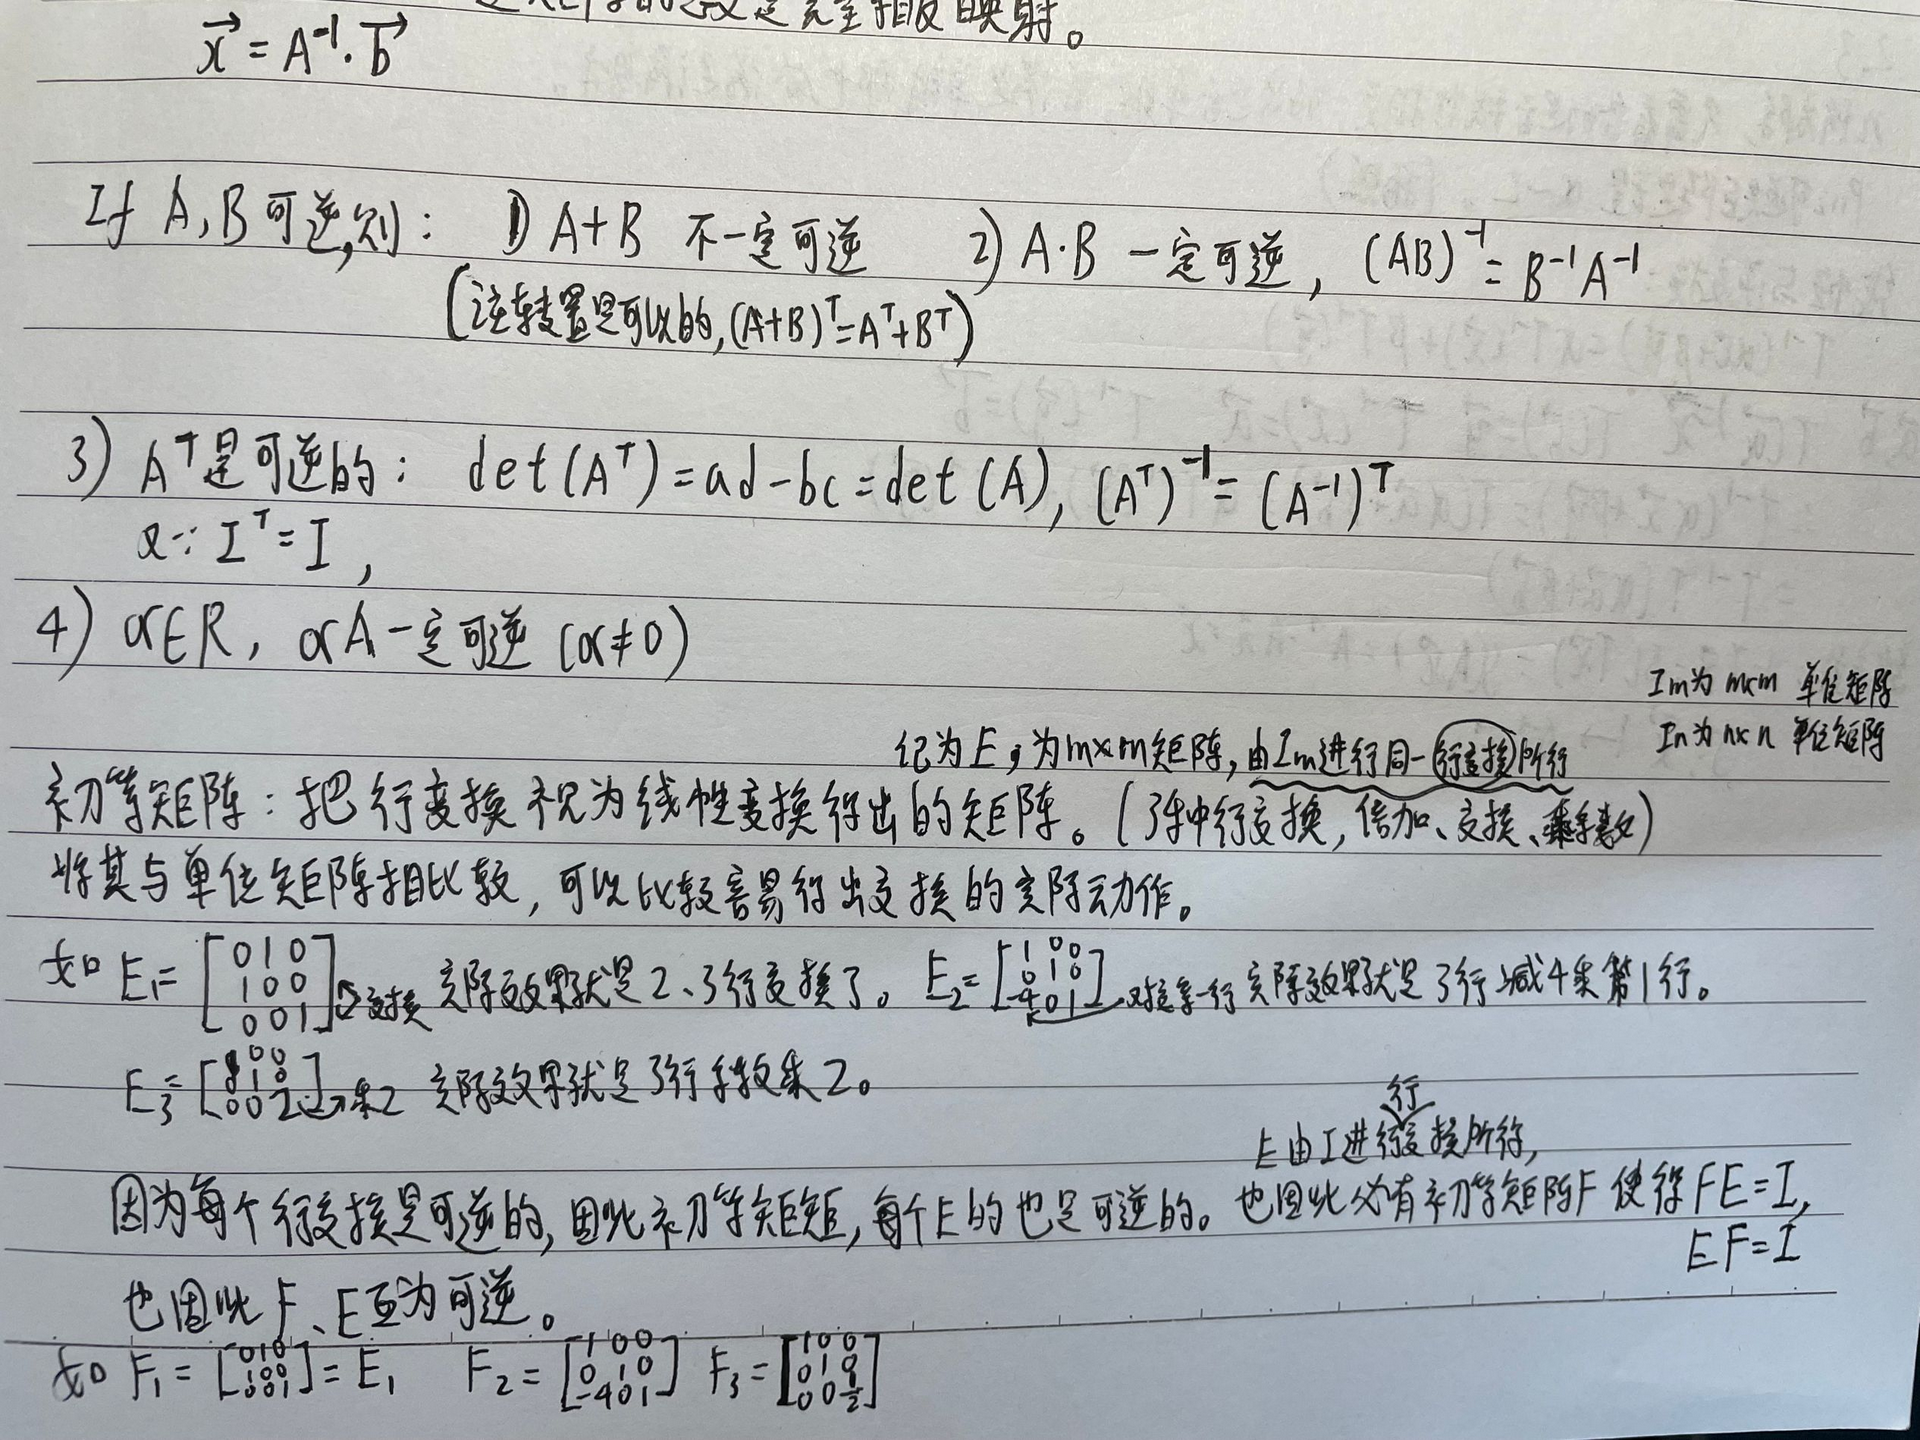 完全相反映射。
x⃗ = A⁻¹·b⃗
If A,B可逆,则: 1) A+B 不一定可逆 2) A·B 一定可逆, (AB)⁻¹ = B⁻¹A⁻¹
(注转置是可以的,(A+B)ᵀ=Aᵀ+Bᵀ)
3) Aᵀ是可逆的: det(Aᵀ)=ad-bc=det(A), (Aᵀ)⁻¹=(A⁻¹)ᵀ
又∵ Iᵀ=I,
4) α∈R, αA一定可逆 (α≠0)
Im为m×m 单位矩阵
In为n×n 单位矩阵
记为E,为m×m矩阵,由Im进行同一行变换所得
初等矩阵:把行变换视为线性变换得出的矩阵。(3种行变换,倍加、交换、乘系数)
将其与单位矩阵相比较,可以比较容易得出变换的实际动作。
如 E₁= [0 1 0; 1 0 0; 0 0 1] 交换 实际效果就是2、3行交换了。 E₂= [1 0 0; 0 1 0; -4 0 1] 对应第一行 实际效果就是3行减4乘第1行。
E₃= [1 0 0; 0 1 0; 0 0 2] →乘2 实际效果就是3行系数乘2。
行
E由I进行变换所得,
因为每个行变换是可逆的,因此初等矩矩,每个E的也是可逆的。也因此必有初等矩阵F使得FE=I,
EF=I
也因此F、E互为可逆。
如 F₁= [0 1 0; 1 0 0; 0 0 1] = E₁ F₂= [1 0 0; 0 1 0; -4 0 1] F₃= [1 0 0; 0 1 0; 0 0 ½]